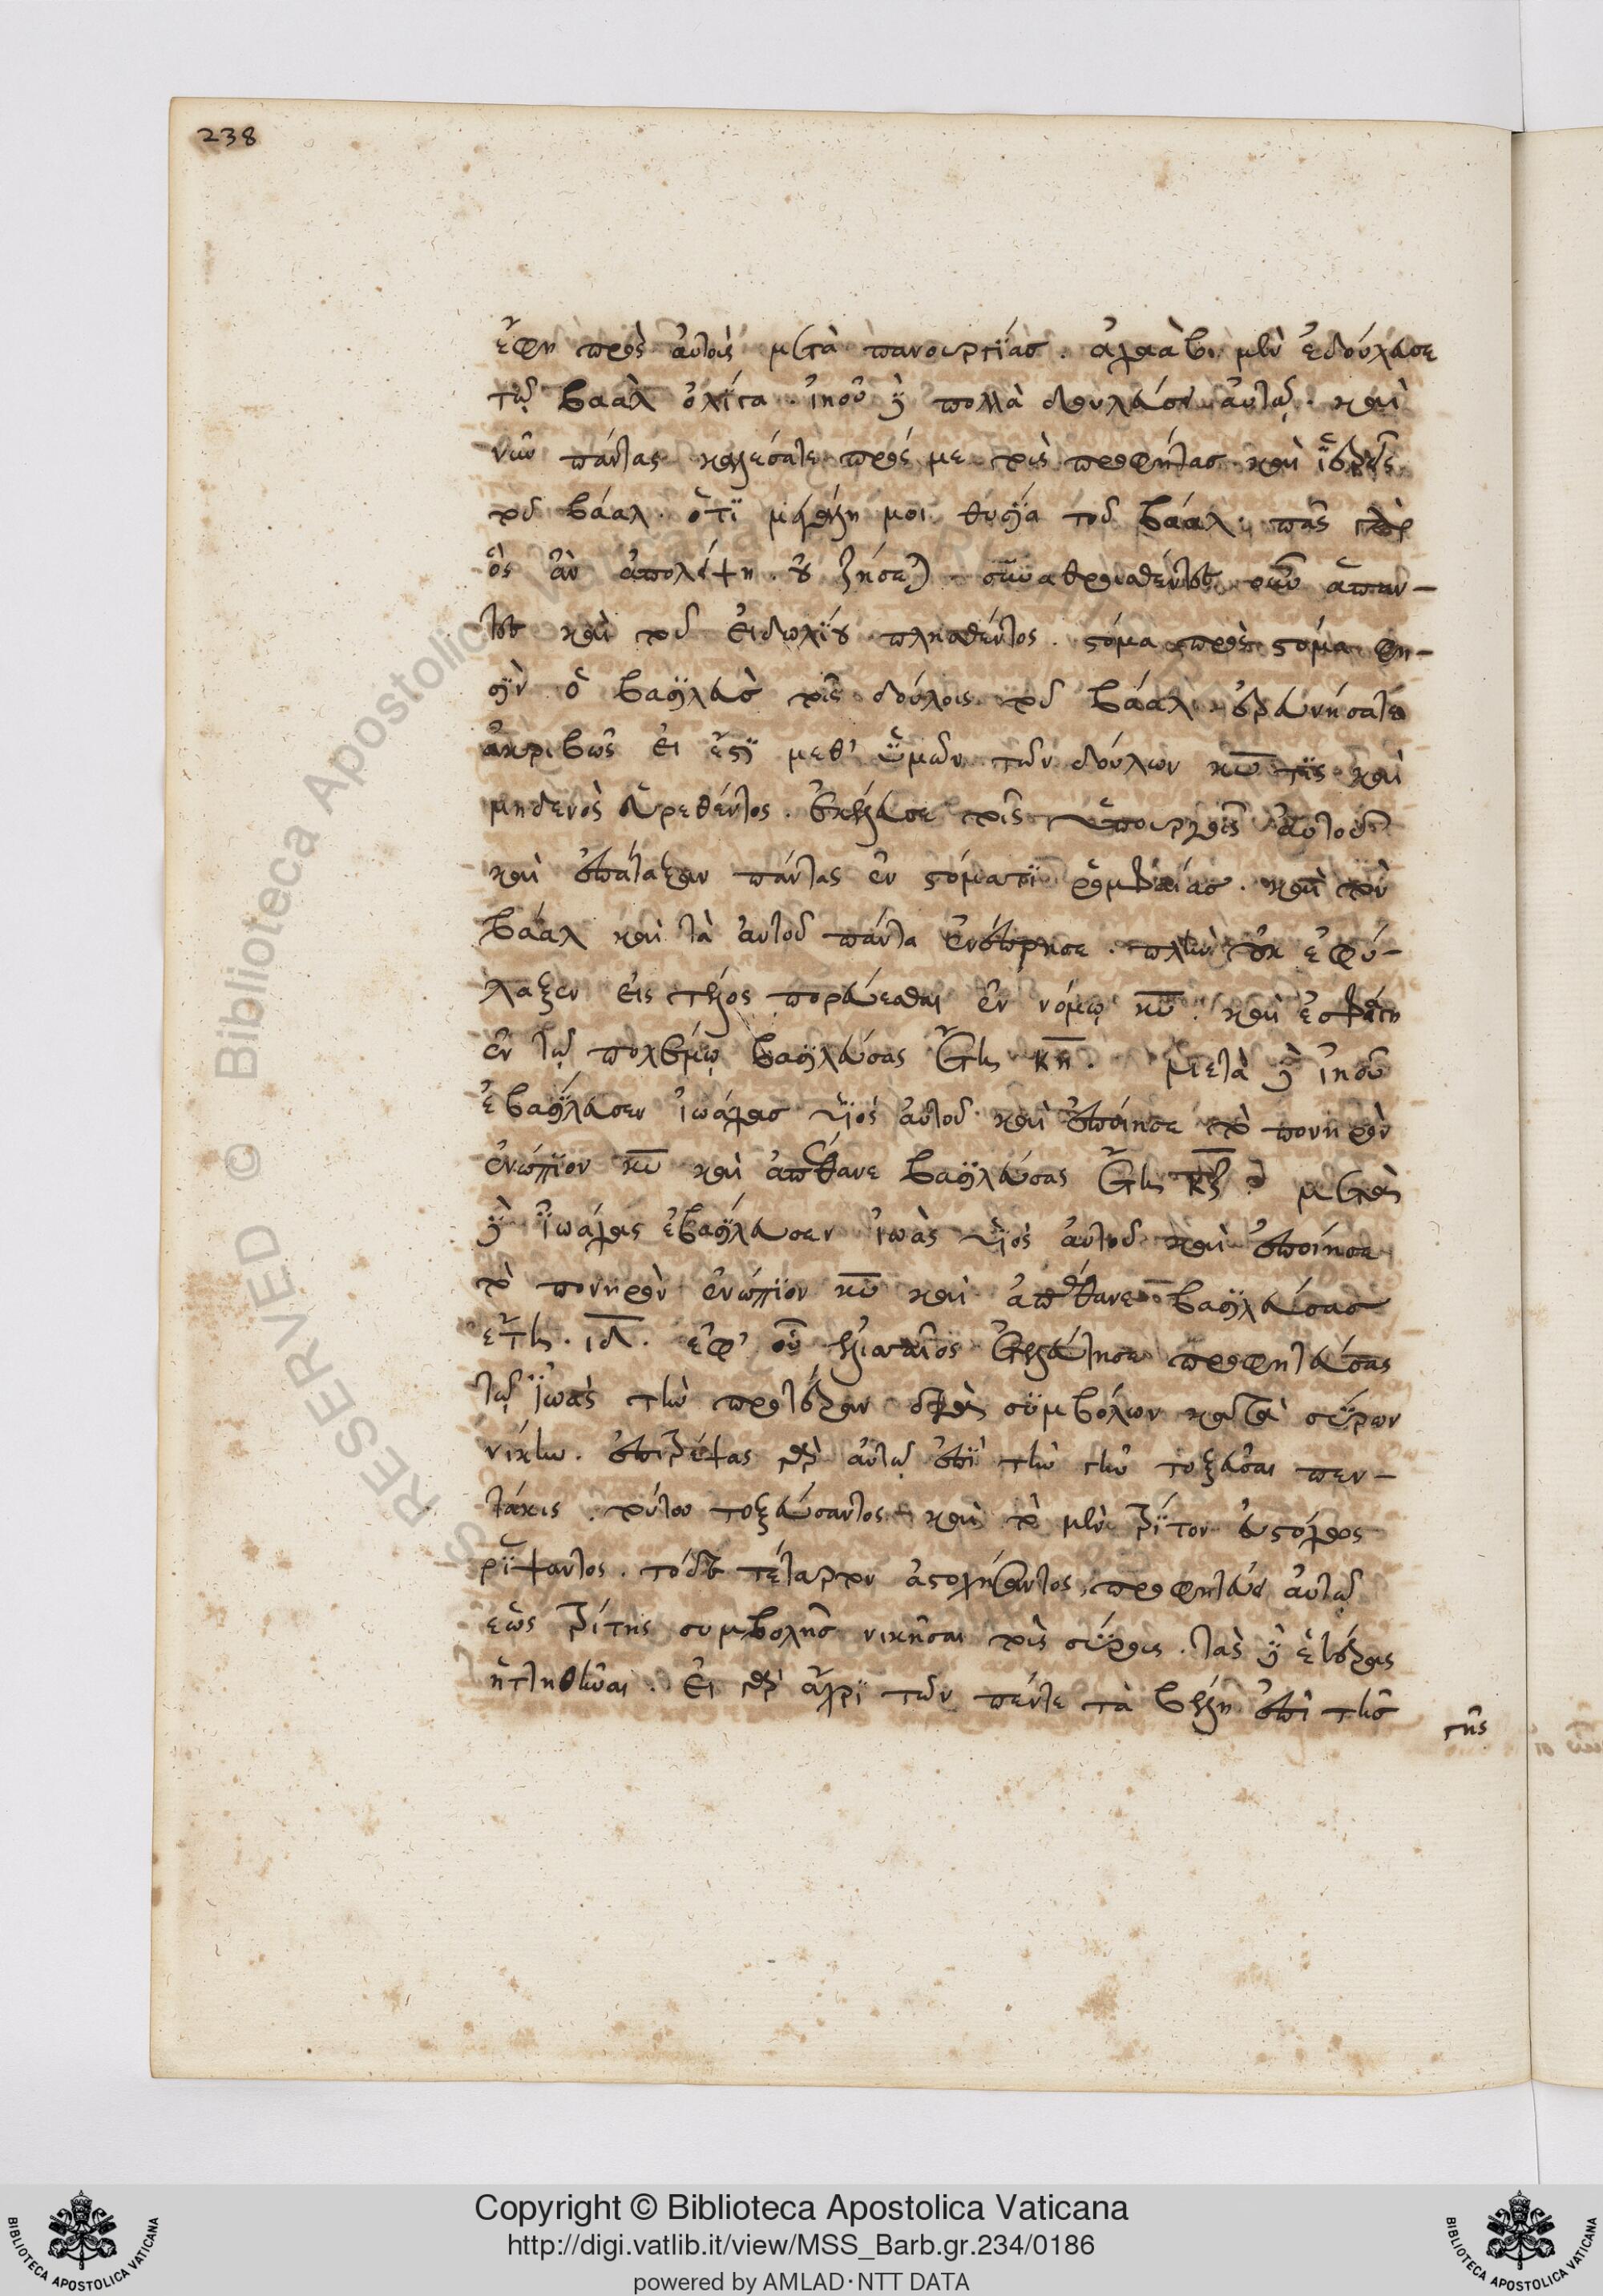 238
ἔφη πρὸς αὐτοὺς μετὰ πανουργίας. ἀχαὰβ μὲν ἐδούλευσε
τῷ βαὰλ ὀλίγα. ἰηοῦ δὲ πολλὰ δουλεύσει αὐτῷ. καὶ
νῦν πάντας καλέσατε πρός με τοὺς προφήτας καὶ ἱερεῖς
τοῦ βάαλ. ὅτι μεγάλη μοι θυσία τοῦ βάαλ. πᾶς γὰρ
ὃς ἂν ἀπολέιψη οὐ ζήσεται. συναθροισθέντων οὖν ἁπάν-
των καὶ τοῦ εἰδωλίου πλησθέντος. στόμα πρὸς στόμα φη-
σὶν ὁ βασιλεὺς τοῖς δούλοις τοῦ βάαλ. ἐρευνήσατε
ἀκριβῶς εἰ ἔστι μεθ' ὑμῶν τῶν δούλων κυ τις καὶ
μηδενὸς εὑρεθέντος. ἐκέλευσε τοῖς ὑπουργοῖς αὐτοῦ
καὶ ἐπάταξαν πάντας ἐν στόματι ῥομφαίας. καὶ τὸν
βάαλ καὶ τὰ αὐτοῦ πάντα ἐνέπρησε. πλὴν οὐκ ἐφύ-
λαξεν εἰς τέλος πορεύεσθαι ἐν νόμῳ κυ. καὶ ἐσφάγη
ἐν τῷ πολέμῳ βασιλεύσας ἔτη κη. μετὰ δὲ ἰηοῦ
ἐβασίλευσεν ἰωάχας υἱὸς αὐτοῦ καὶ ἐποίησε τὸ πονηρὸν
ἐνώπιον κυ καὶ ἀπέθανε βασιλεύσας ἔτη κζ. μετὰ
δὲ ἰωάχας ἐβασίλευσεν ἰωὰς υἱὸς αὐτοῦ καὶ ἐποίησε
τὸ πονηρὸν ἐνώπιον κυ καὶ ἀπέθανε βασιλεύσας
ἔτη. ιδ. ἐφ' οὗ ἐλισσαῖος ἐτελεύτησε προφητεύσας
τῷ ἰωὰς τὴν προτέραν διὰ συμβόλων κατὰ σύρων
νίκην. ἐπιτρέψας γὰρ αὐτῷ ἐπὶ τὴν γῆν τοξεῦσαι πεν-
τάκις. τούτου τοξεύσαντος καὶ τὸ μὲν τρίτον εὐστόχως
ρίψαντος. τὸ δὲ τέταρτον ἀστοχήσαντος, προφητεύει αὐτῷ
ἕως τρίτης συμβολῆς νικῆσαι τοὺς σύρους. τὰς δὲ ἑτέρας
ἡττηθῆναι. εἰ γὰρ ἄχρι τῶν πέντε τὰ βέλη ἐπὶ τῆς
γῆς
Copyright © Biblioteca Apostolica Vaticana
http://digi.vatlib.it/view/MSS_Barb.gr.234/0186
powered by AMLAD·NTT DATA